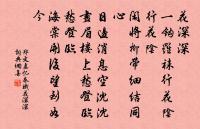 花深深
一鉤羅袜行花陰
行花陰
閑將柳帶細結同
心
日邊消息空沈沈
畫眉樓上愁登臨
愁登臨
海棠開後望到如
今
鄭文妻憶秦娥花深深